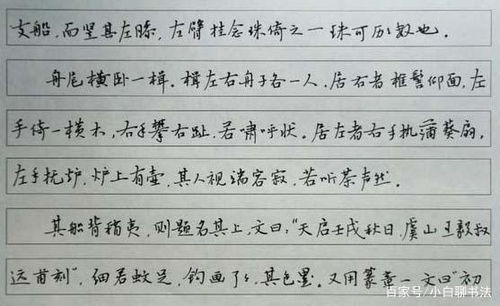 支船，而竖其左膝，左臂挂念珠倚之一珠可历数也。
舟尾横卧一楫。楫左右舟子各一人，居右者椎髻仰面，左
手倚一横木，右手攀右趾，若啸呼状。居左者右手执蒲葵扇，
左手抚炉，炉上有壶，其人视端容寂，若听茶声然。
其船背稍夷，则题名其上，文曰，“天启壬戌秋日，虞山王毅叔
远甫刻”，细若蚊足，钩画了了，其色墨。又用篆章一文曰“初
百家号/小白聊书法